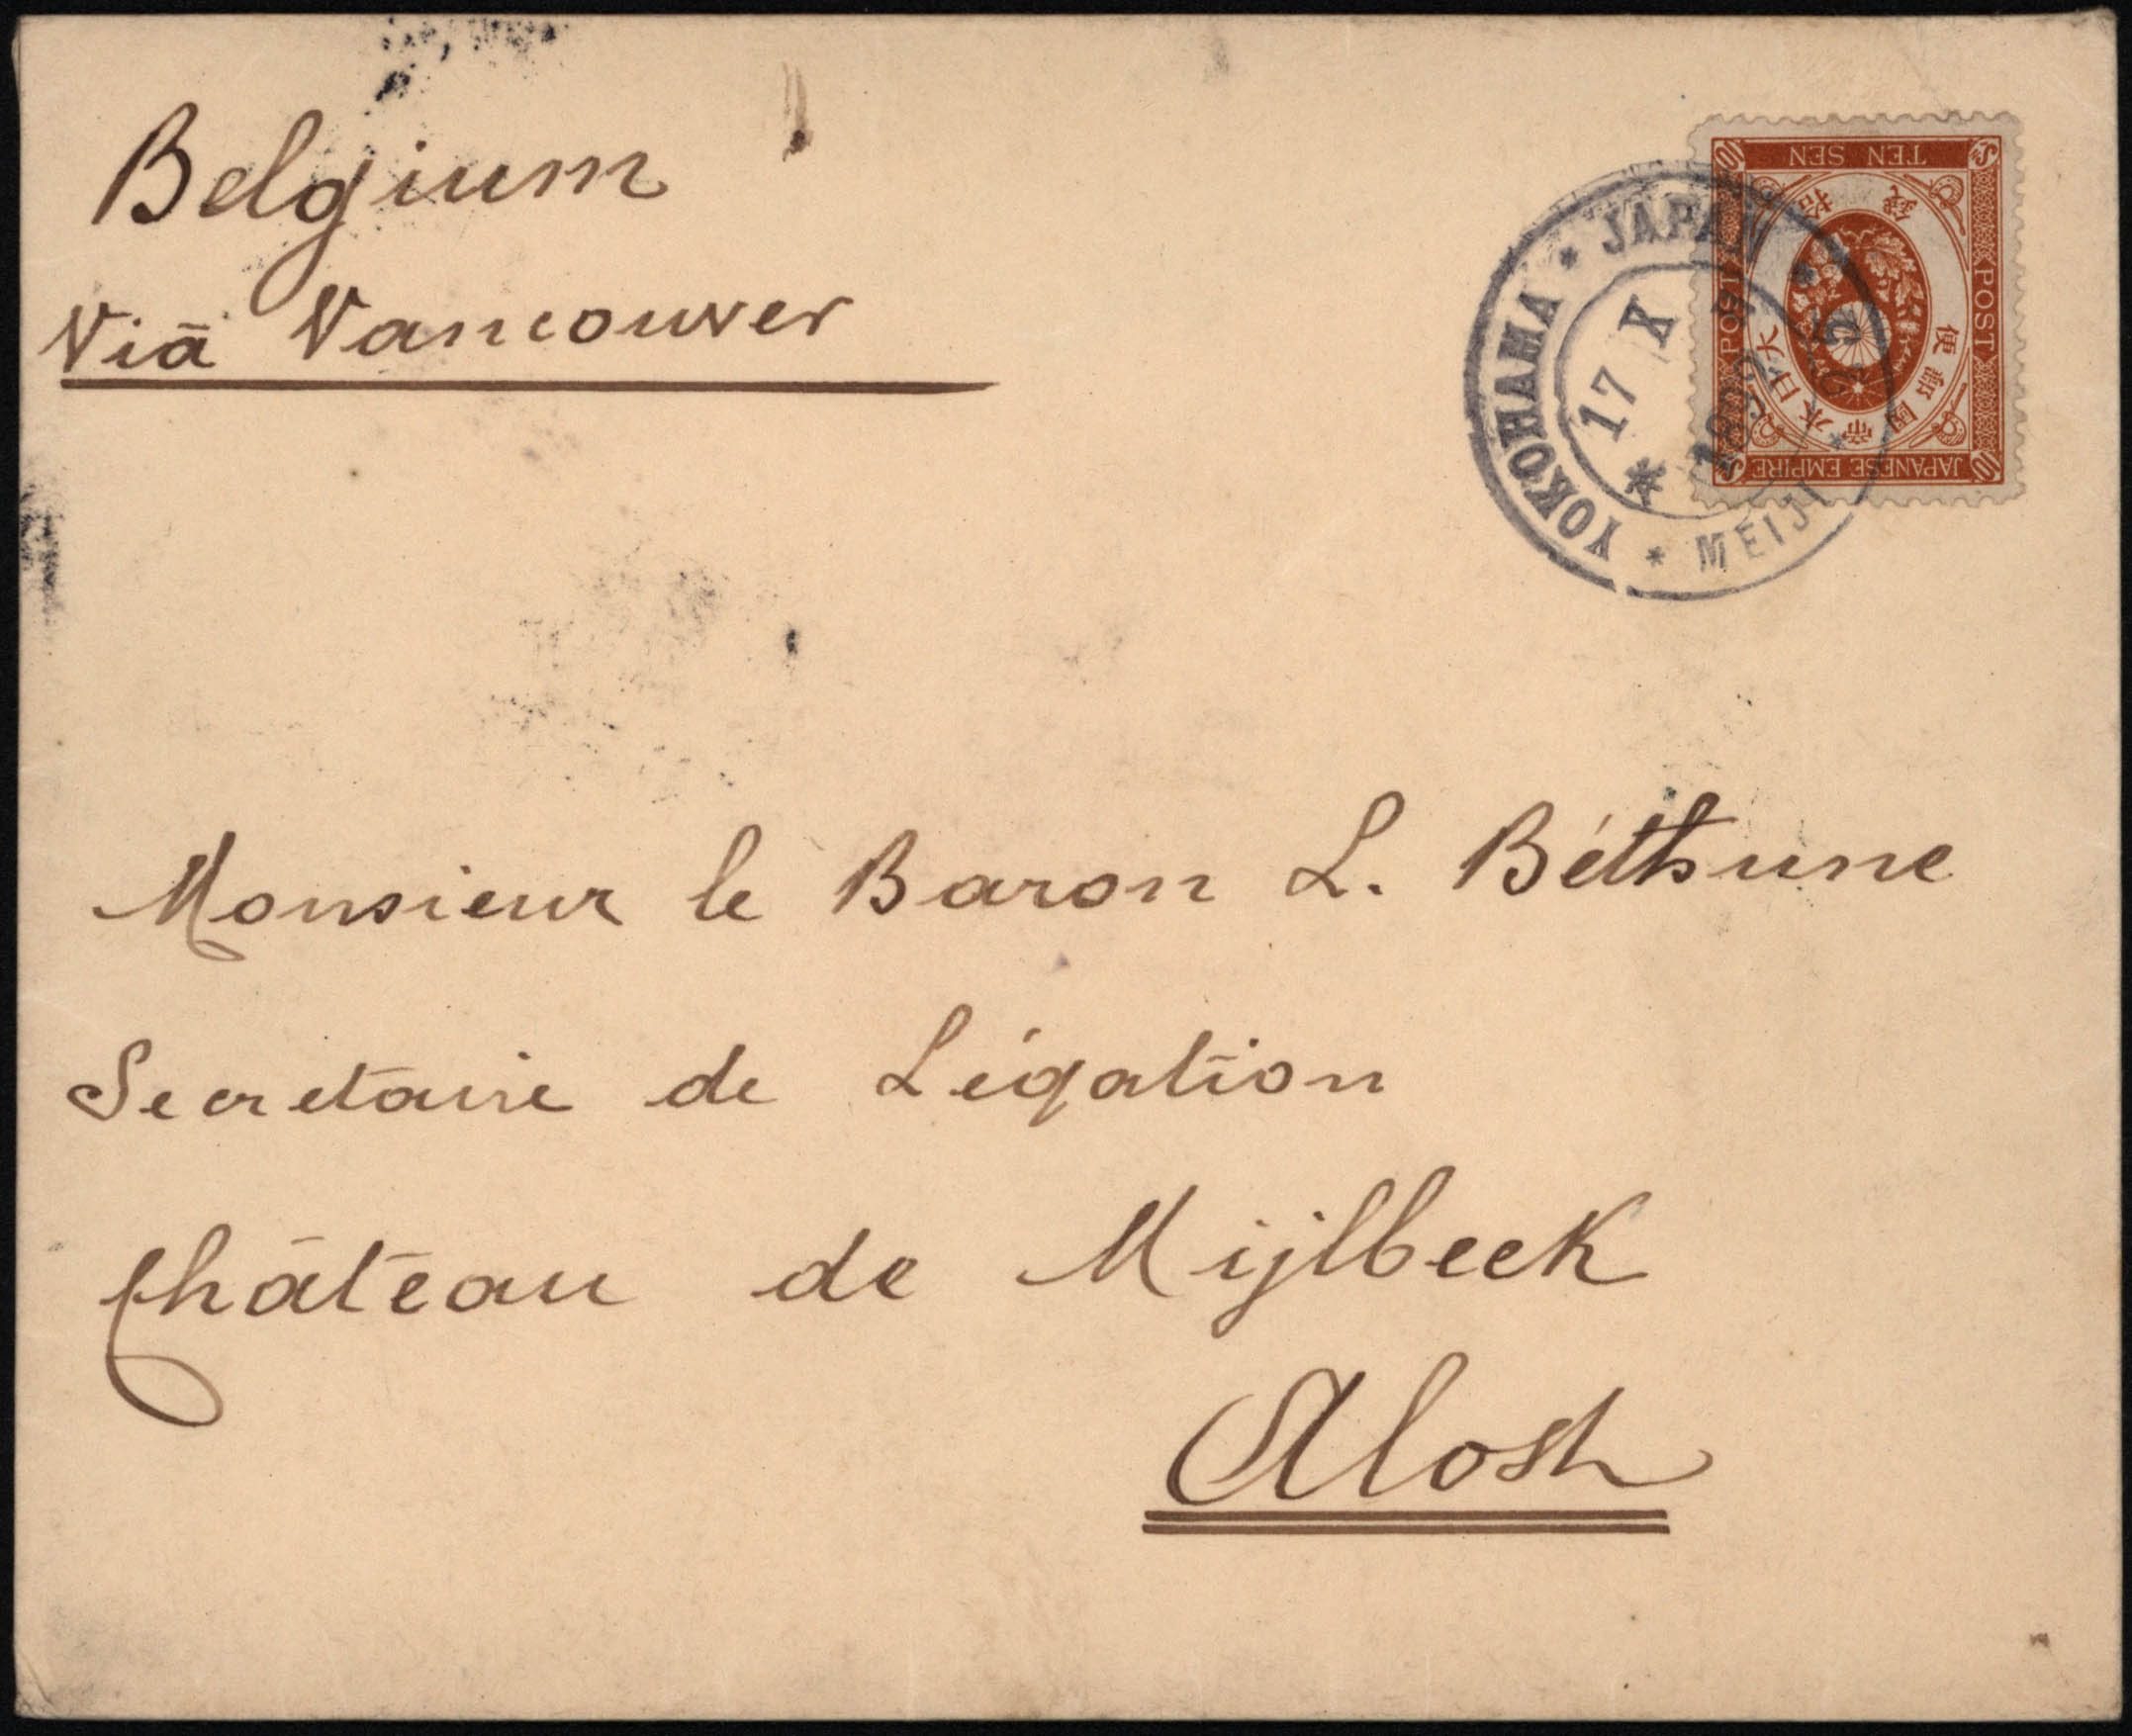 Belgium
Viā Vancouver
JAPAN
YOKOHAMA
17 X
MEIJI
TEN SEN
POST
JAPANESE EMPIRE
大日本帝国郵便
拾銭
10 S
Monsieur le Baron L. Béthune
Secretaire de Légation
Château de Mijlbeek
Alost